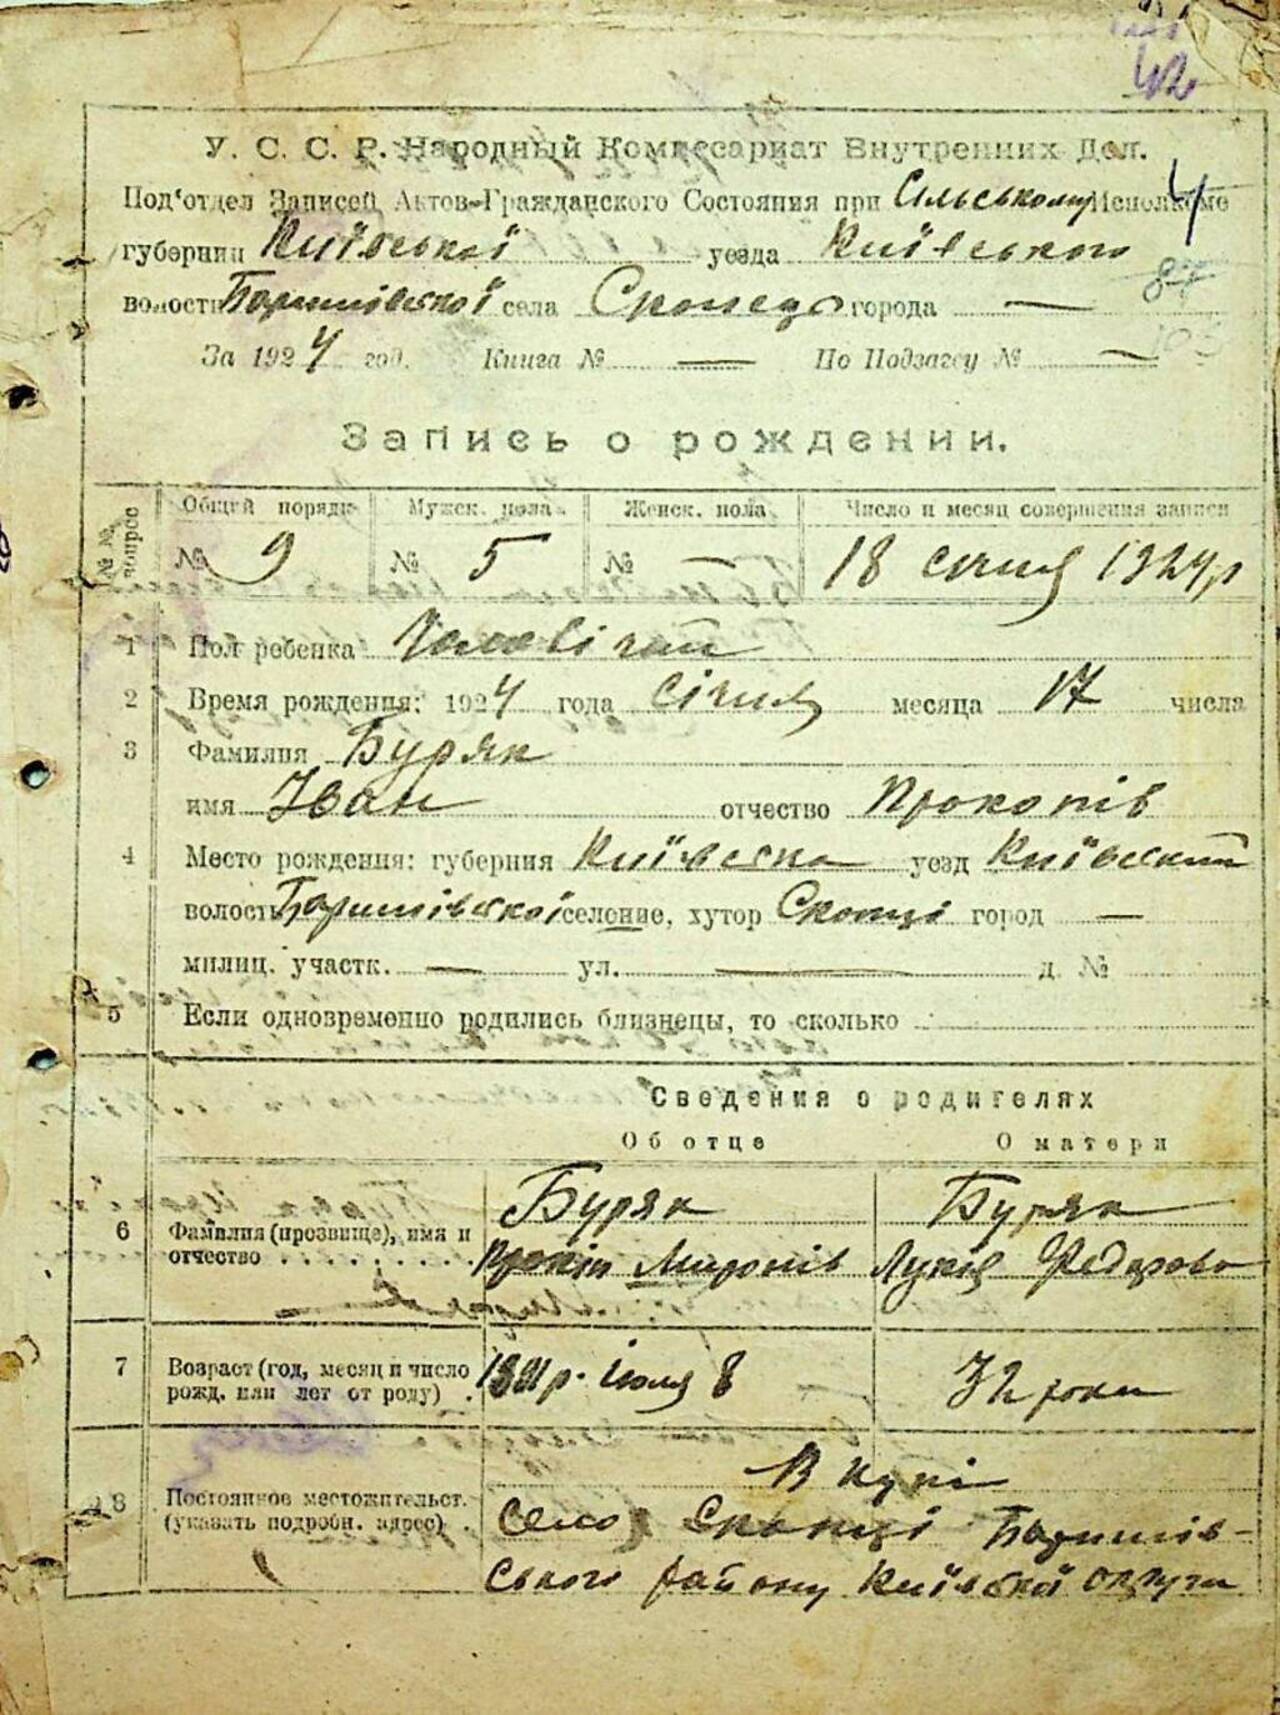 42
У. С. С. Р. Народный Комиссариат Внутренних Дел.
Под'отдел Записей Актов-Гражданского Состояния при Сільському Исполкоме
4
губернии Київської уезда Київського
87
волости Баришівської села Скопець города —
За 1924 год. Книга № — По Подзагсу № —
Запись о рождении.
№№ вопрос
Общей порядк. Мужск. пола Женск. пола Число и месяц совершения записи
№ 9 № 5 № — 18 січня 1924 р
1 Пол ребенка Чоловічий
2 Время рождения: 1924 года січня месяца 17 числа
3 Фамилия Буряк
имя Іван отчество Прокопів
4 Место рождения: губерния Київська уезд Київський
волость Баришівської селение, хутор Скопці город —
милиц. участк. — ул. — д. №
5 Если одновременно родились близнецы, то сколько
Сведения о родителях
Об отце О матери
6 Фамилия (прозвище), имя и отчество
Буряк Буряк
Прокіп Миронів Лукія Федорова
7 Возраст (год, месяц и число рожд. или лет от роду)
июля 8 32 роки
8 Постоянное местожительст. (указать подробн. адрес)
В купі
Село Скопці Баришів-
ського району Київської округи